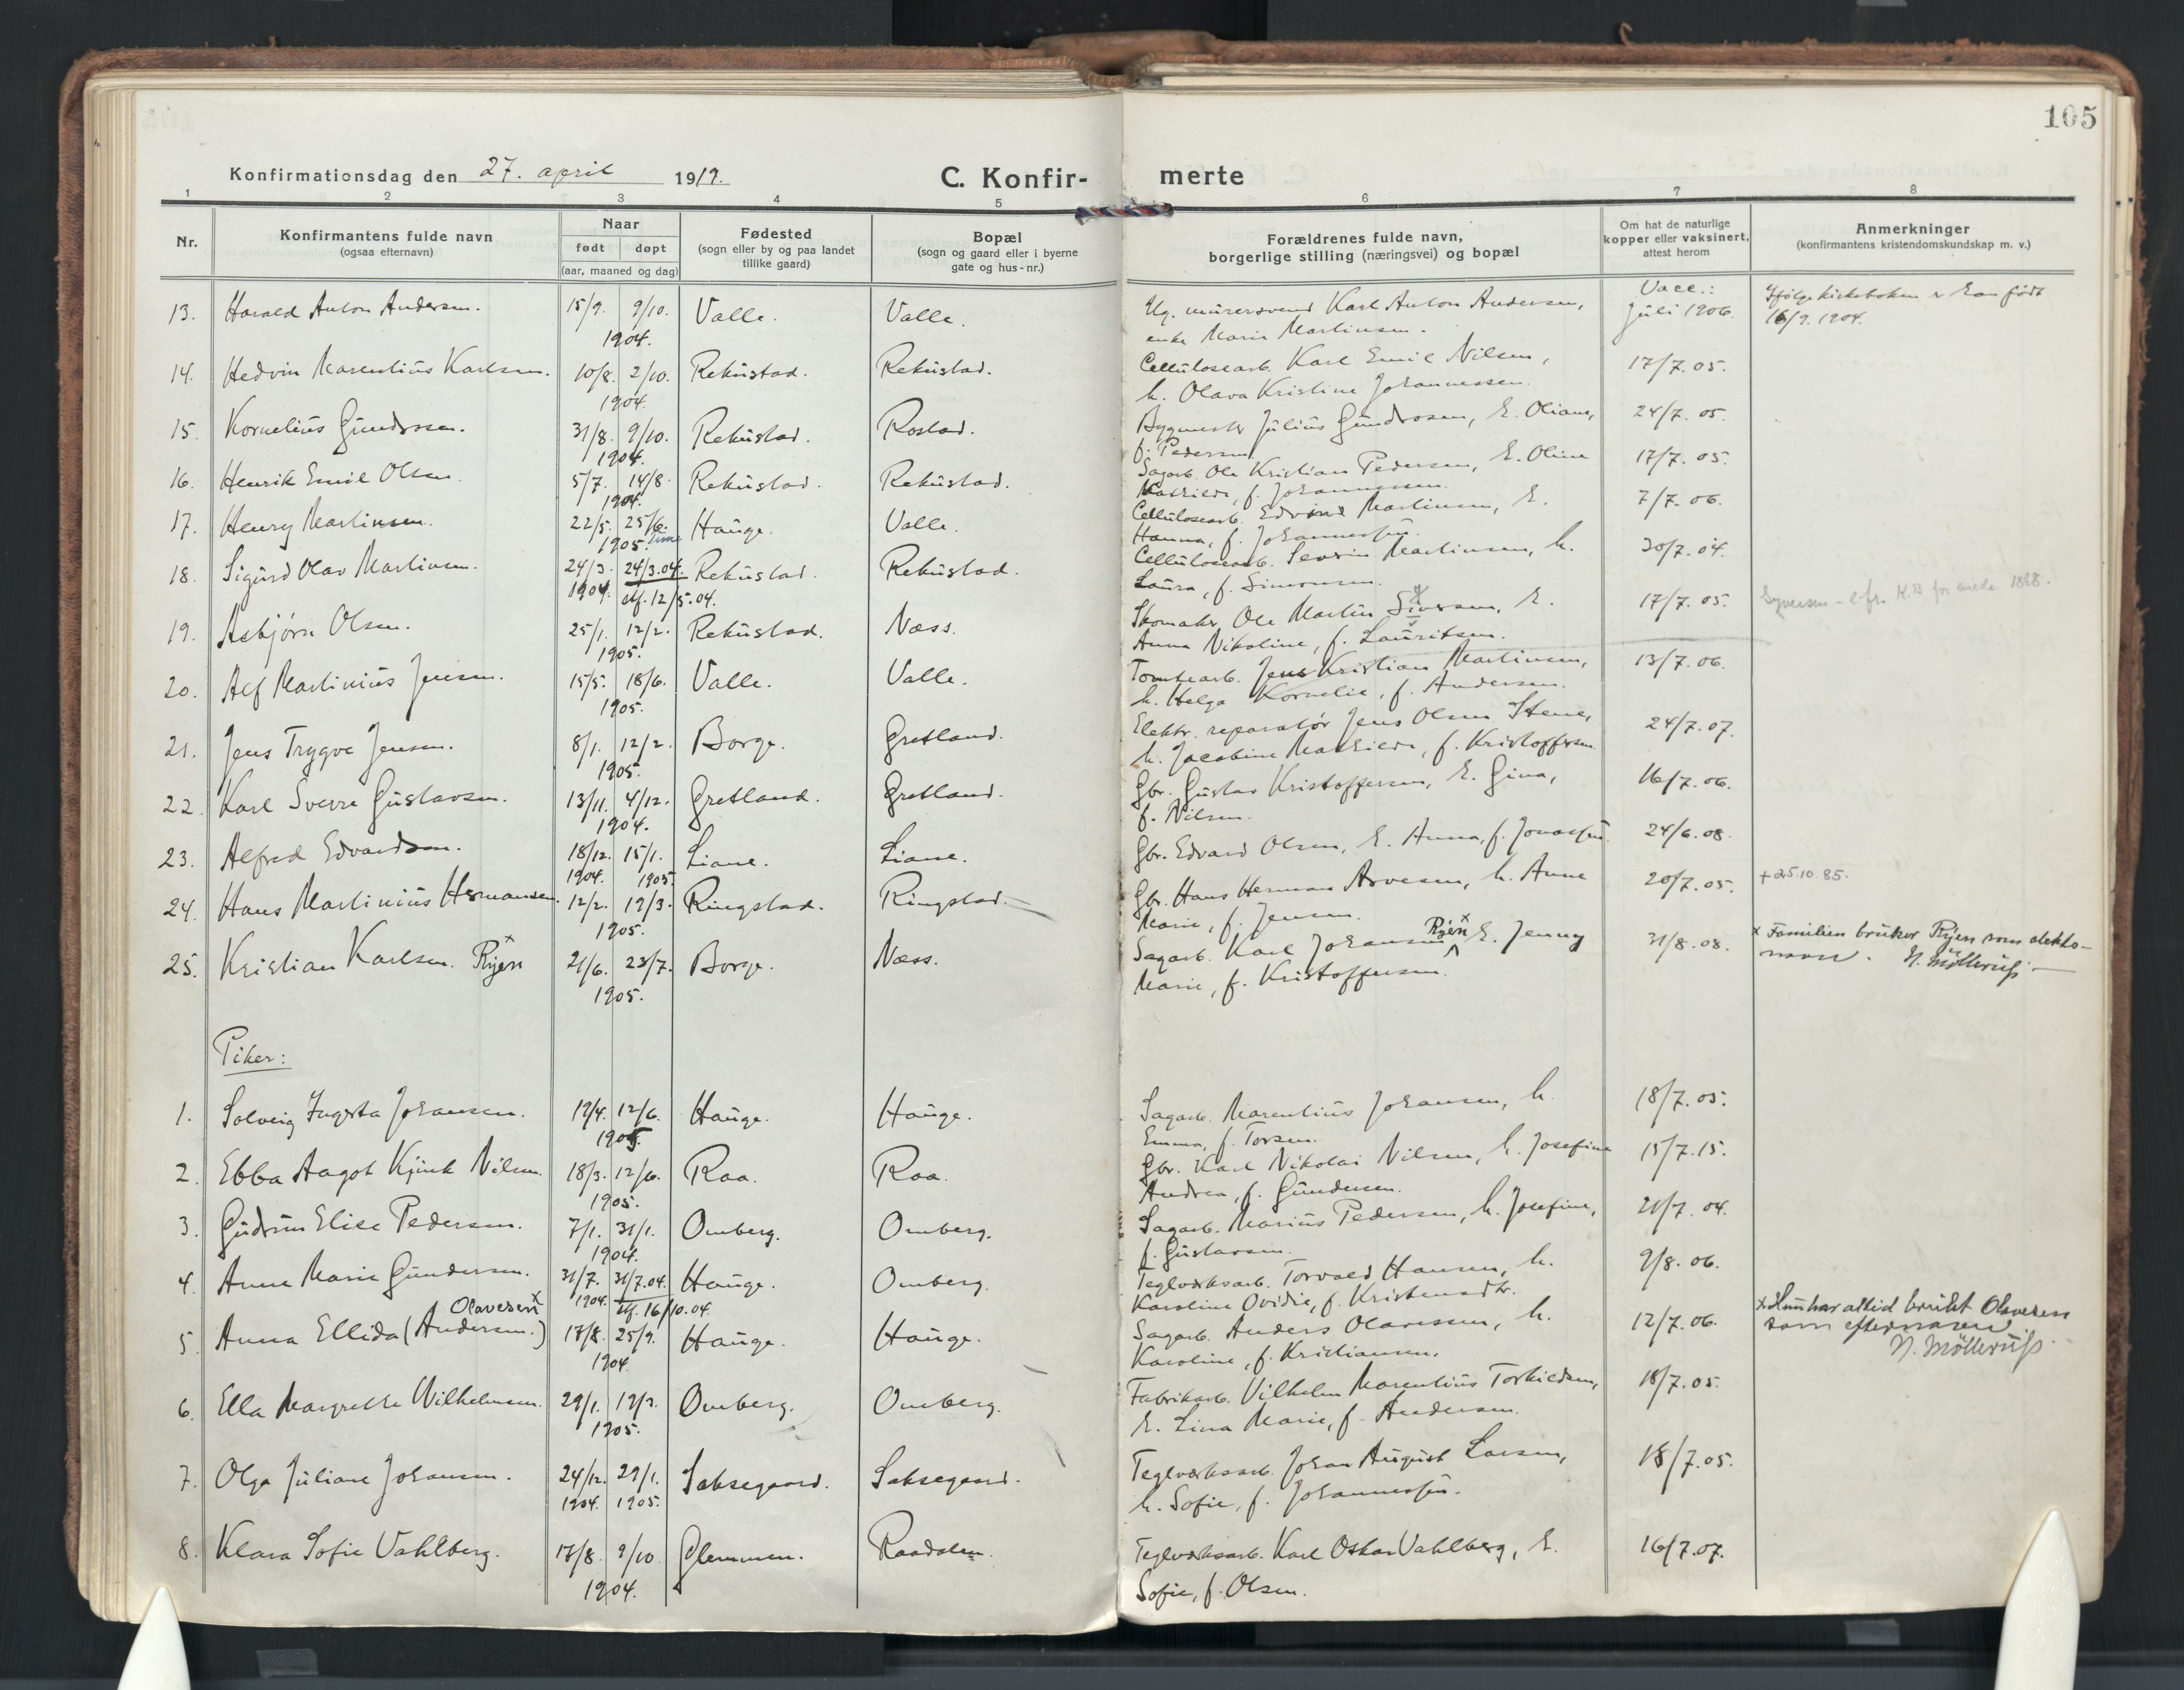 105
Konfirmationsdag den 27. april 1919.
C. Konfir-merte
1 2 3 4 5 6 7 8
Nr.
Konfirmantens fulde navn
(ogsaa efternavn)
Naar
født døpt
(aar, maaned og dag)
Fødested
(sogn eller by og paa landet
tillike gaard)
Bopæl
(sogn og gaard eller i byerne
gate og hus-nr.)
Forældrenes fulde navn,
borgerlige stilling (næringsvei) og bopæl
Om hat de naturlige
kopper eller vaksinert,
attest herom
Anmerkninger
(konfirmantens kristendomskundskap m. v.)
13. Harald Anton Andersen. 15/9. 9/10. 1904. Valle. Valle. Ug. murersvend Karl Anton Andersen, Vacc.: Ifølge kirkeboken er han født
enke Marie Martinsen. juli 1906. 16/9. 1904.
14. Hedvin Marentius Karlsen. 10/8. 2/10. 1904. Rekustad. Rekustad. Cellulosearb. Karl Emil Nilsen, 17/7. 05.
h. Olava Kristine Johannessen.
15. Kornelius Gundrosen. 31/8. 9/10. 1904. Rekustad. Rostad. Bygmester Julius Gundrosen, h. Oliane, 24/7. 05.
f. Pedersen.
16. Henrik Emil Olsen. 5/7. 14/8. 1904. Rekustad. Rekustad. Sagarb. Ole Kristian Pedersen, h. Oline 17/7. 05.
Mathilde, f. Johannessen.
17. Henry Martinsen. 22/5. 25/6. 1905. Hauge. Valle. Cellulosearb. Edvin Martinsen, h. 7/7. 06.
Hanna, f. Johannessen.
18. Sigurd Olav Martinsen. 24/3. 1904. 24/3.04. stf. 12/5.04. Rekustad. Rekustad. Cellulosearb. Severin Martinsen, h. 30/7. 04.
Laura, f. Simonsen.
19. Asbjørn Olsen. 25/1. 12/2. 1905. Rekustad. Næss. Skomaker Ole Martin Siversen, h. 17/7. 05. Syversen - cfr. K.B for 1888.
Anna Nikoline, f. Lauritsen.
20. Alf Martinius Jensen. 15/5. 18/6. 1905. Valle. Valle. Tomtearb. Jens Kristian Martinsen, 13/7. 06.
h. Helga Kornelie, f. Andersen.
21. Jens Trygve Jensen. 8/1. 12/2. 1905. Borge. Gretland. Elektr. reparatør Jens Olsen Stene, 24/7. 07.
h. Jacobine Mathilde, f. Kristoffersen
22. Karl Sverre Gustavsen. 13/11. 4/12. 1904. Gretland. Gretland. Gbr. Gustav Kristoffersen, h. Gina, 16/7. 06.
f. Nilsen.
23. Alfred Edvardsen. 18/12. 1904. 15/1. 1905. Liane. Liane. Gbr. Edvard Olsen, h. Anna, f. Jonassen 24/6. 08.
24. Hans Martinius Hermansen. 12/2. 19/3. 1905. Ringstad. Ringstad. Gbr. Hans Herman Arvesen, h. Anne 20/7. 05. + 25.10.85.
Marie, f. Jensen.
25. Kristian Karlsen. Ryen x 21/6. 23/7. 1905. Borge. Næss. Sagarb. Karl Johansen Ryen x h. Jenny 31/8. 08. x Familien bruker Ryen som slekts-
Marie, f. Kristoffersen. navn. N. Møllerup.
Piker:
1. Solveig Ingerta Johansen. 19/4. 12/6. 1905. Hauge. Hauge. Sagarb. Marentius Johansen, h. 18/7. 05.
Emma, f. Torsen.
2. Ebba Aagot Kjirk Nilsen. 18/3. 12/6. 1905. Raa. Raa. Gbr. Karl Nikolai Nilsen, h. Josefine 15/7. 15.
Andrea, f. Gundersen.
3. Gudrun Elise Pedersen. 7/1. 31/1. 1904. Omberg. Omberg. Sagarb. Marius Pedersen, h. Josefine, 21/7. 04.
f. Gustavsen.
4. Anne Marie Gundersen. 31/7. 1904. 31/7.04. stf. 16/10.04. Hauge. Omberg. Teglverksarb. Torvald Hansen, h. 9/8. 06.
Karoline Ovidie, f. Kristensdtr.
5. Anna Ellida (Andersen.) Olavesen x 17/8. 25/9. 1904. Hauge. Hauge. Sagarb. Anders Olavessen, h. 12/7. 06. x Hun har altid brukt Olavesen
Karoline, f. Kristiansen. som efternavn. N. Møllerup.
6. Ella Margrethe Wilhelmsen. 29/1. 19/3. 1905. Omberg. Omberg. Fabrikarb. Vilhelm Marentius Torkildsen, 18/7. 05.
h. Lina Marie, f. Andersen.
7. Olga Juliane Johansen. 24/12. 1904. 29/1. 1905. Saksegaard. Saksegaard. Teglverksarb. Johan August Larsen, 18/7. 05.
h. Sofie, f. Johannessen.
8. Klara Sofie Vahlberg. 17/8. 9/10. 1904. Glemmen. Raadalen. Teglverksarb. Karl Oskar Vahlberg, h. 16/7. 07.
Sofie, f. Olsen.